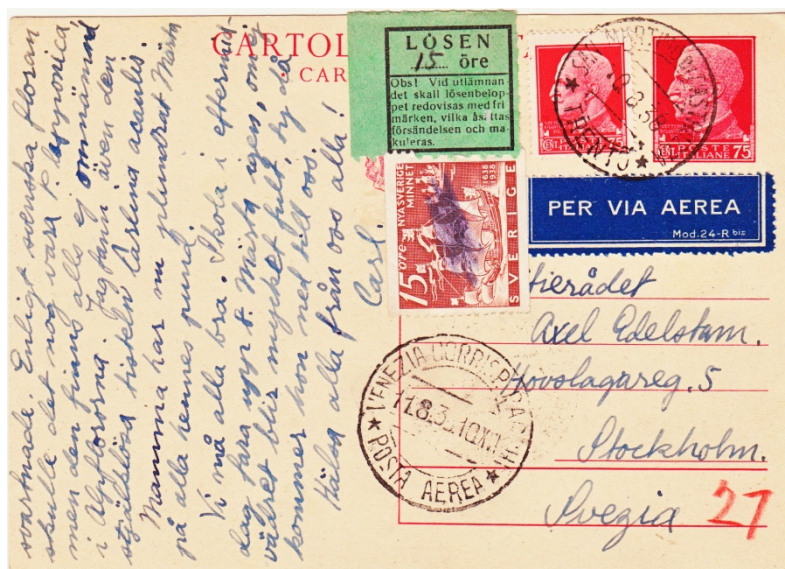 CARTOL
CAR
LÖSEN
15 öre
Obs! Vid utlämnan
det skall lösenbelop
pet redovisas med fri
märken, vilka åsättas
försändelsen och ma
kuleras.
TRENTO
POSTE
ITALIANE
CENT. 75
PER VIA AEREA
Mod. 24-R bis
15 ÖRE
NYA SVERIGE
MINNET
1638
1938
SVERIGE
Axel Edelstam.
Hovslagareg. 5
Stockholm.
Svezia
27
VENEZIA
11.8.3
POSTA AEREA
svartnade. Enligt svenska floran
skulle det nog vara P. lapponica,
men den finns alls ej omnämnd
i Alpflororna. Jag fann även den
stjälklösa tisteln Carlina acaulis.
Mamma har nu plundrat Märta
på alla hennes pund.
Vi må alla bra. Skola i eftermid-
dag fara upp t. Märta igen, om ej
vädret blir mycket fult, ty då
kommer hon ned till oss.
Hälsa alla från oss alla!
Carl.